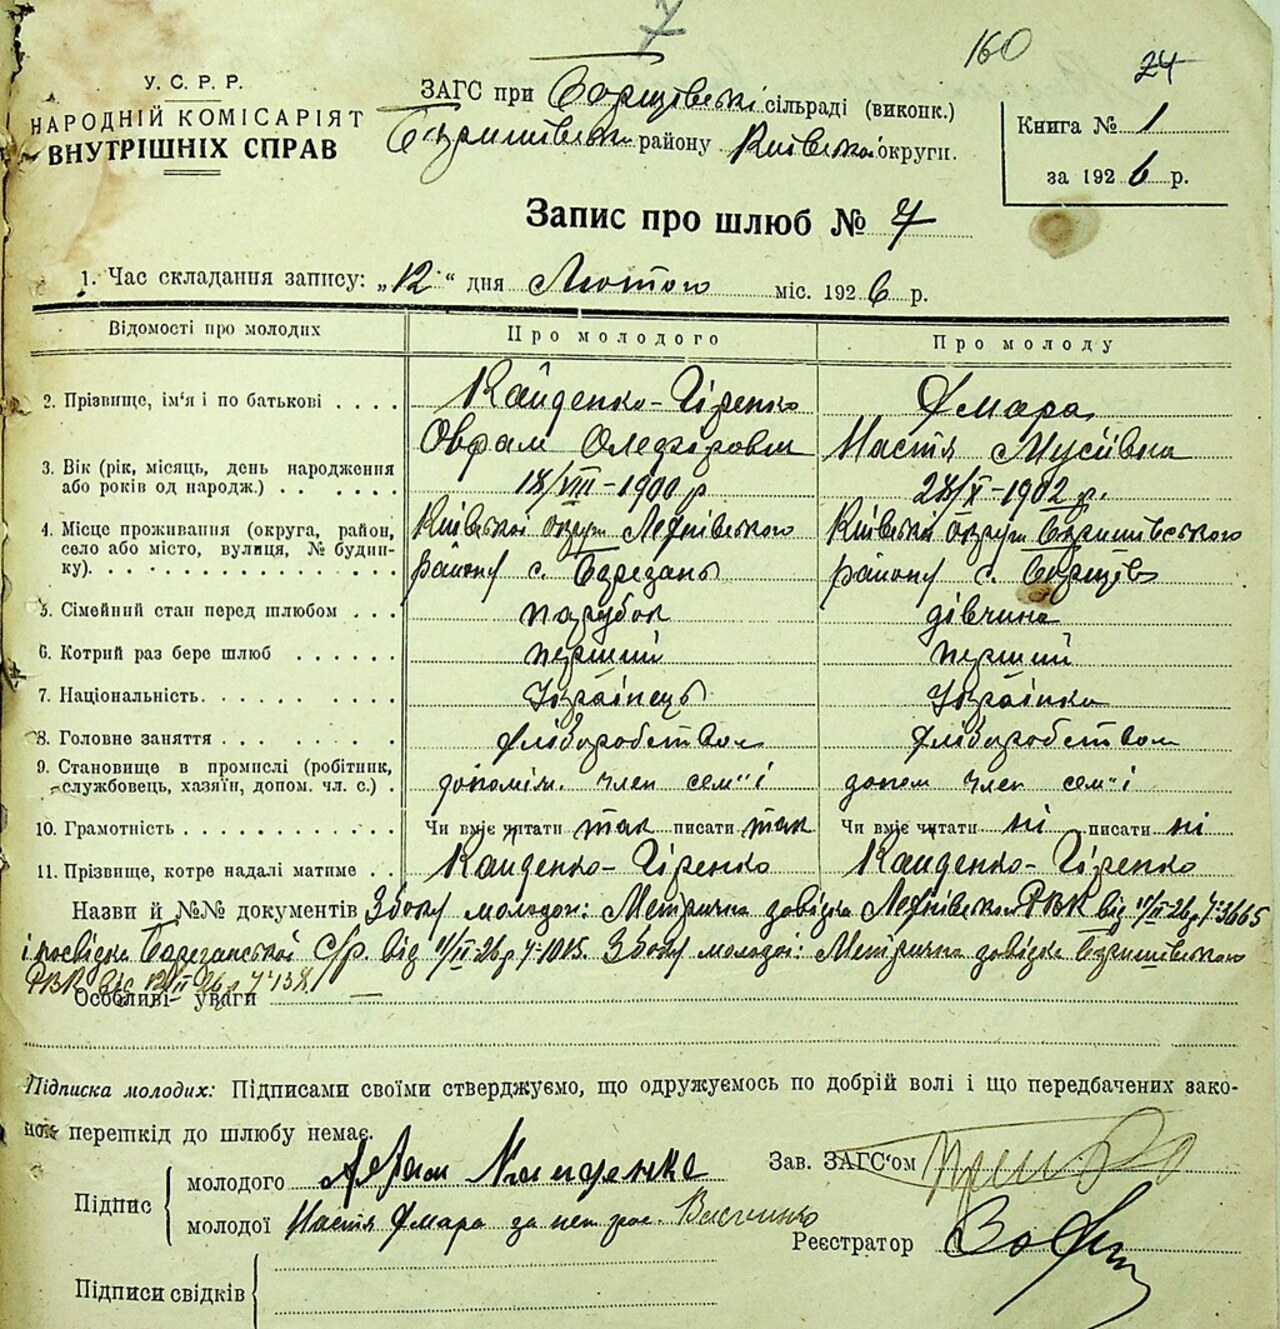 7
160
24
У. С. Р. Р.
НАРОДНІЙ КОМІСАРІЯТ
ВНУТРІШНІХ СПРАВ
ЗАГС при Борщівські сільраді (виконк.)
району Київської округи.
Книга № 1
за 1926 р.
Запис про шлюб № 7
1. Час складання запису: „12" дня Лютого міс. 1926 р.
Відомості про молодих
Про молодого
Про молоду
2. Прізвище, ім'я і по батькові
Кайденко-Гіренко
Хмара
Оврам
Настя Мусіївна
3. Вік (рік, місяць, день народження або років од народж.)
18/VIII-1900 р
28/X-1902 р.
4. Місце проживання (округа, район, село або місто, вулиця, № будинку).
Київської округи
Київської округи Баришівського
району с. Березань
району с. Борщів
5. Сімейний стан перед шлюбом
парубок
дівчина
6. Котрий раз бере шлюб
перший
перший
7. Національність.
Українець
Українка
8. Головне заняття
хліборобством
хліборобством
9. Становище в промислі (робітник, службовець, хазяїн, допом. чл. с.)
допоміж. член сем"ї
допом член сем"ї
10. Грамотність
Чи вміє читати так писати так
Чи вміє читати ні писати ні
11. Прізвище, котре надалі матиме
Кайденко-Гіренко
Кайденко-Гіренко
Назви й №№ документів З боку молодого: Метрична довідка РВК від 11/II-26 р № 3665
і посвідка Березанської С/р. від 11/II-26 р № 1015. З боку молодої: Метрична довідка Баришівського
РВК від 12/II 26 р № 138.
Особливі уваги —
Підписка молодих: Підписами своїми стверджуємо, що одружуємось по добрій волі і що передбачених законом перешкід до шлюбу немає.
Підпис
молодого Авраам Кайденко
молодої Настя Хмара за неграм.
Зав. ЗАГС'ом
Реєстратор
Підписи свідків